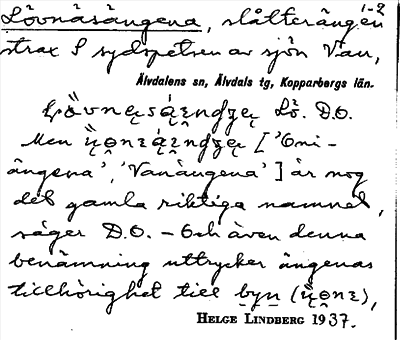 1-2
Lövnäsängena, slåtterängen
strax S sydspetsen av sjön Van,
Älvdalens sn, Älvdals tg, Kopparbergs län.
Lö. D.O.
Men ['Oni-
ängena', 'Vanängena'] är nog
det gamla riktiga namnet,
säger D.O. – Och även denna
benämning uttrycker ängenas
tillhörighet till byn
HELGE LINDBERG 1937.